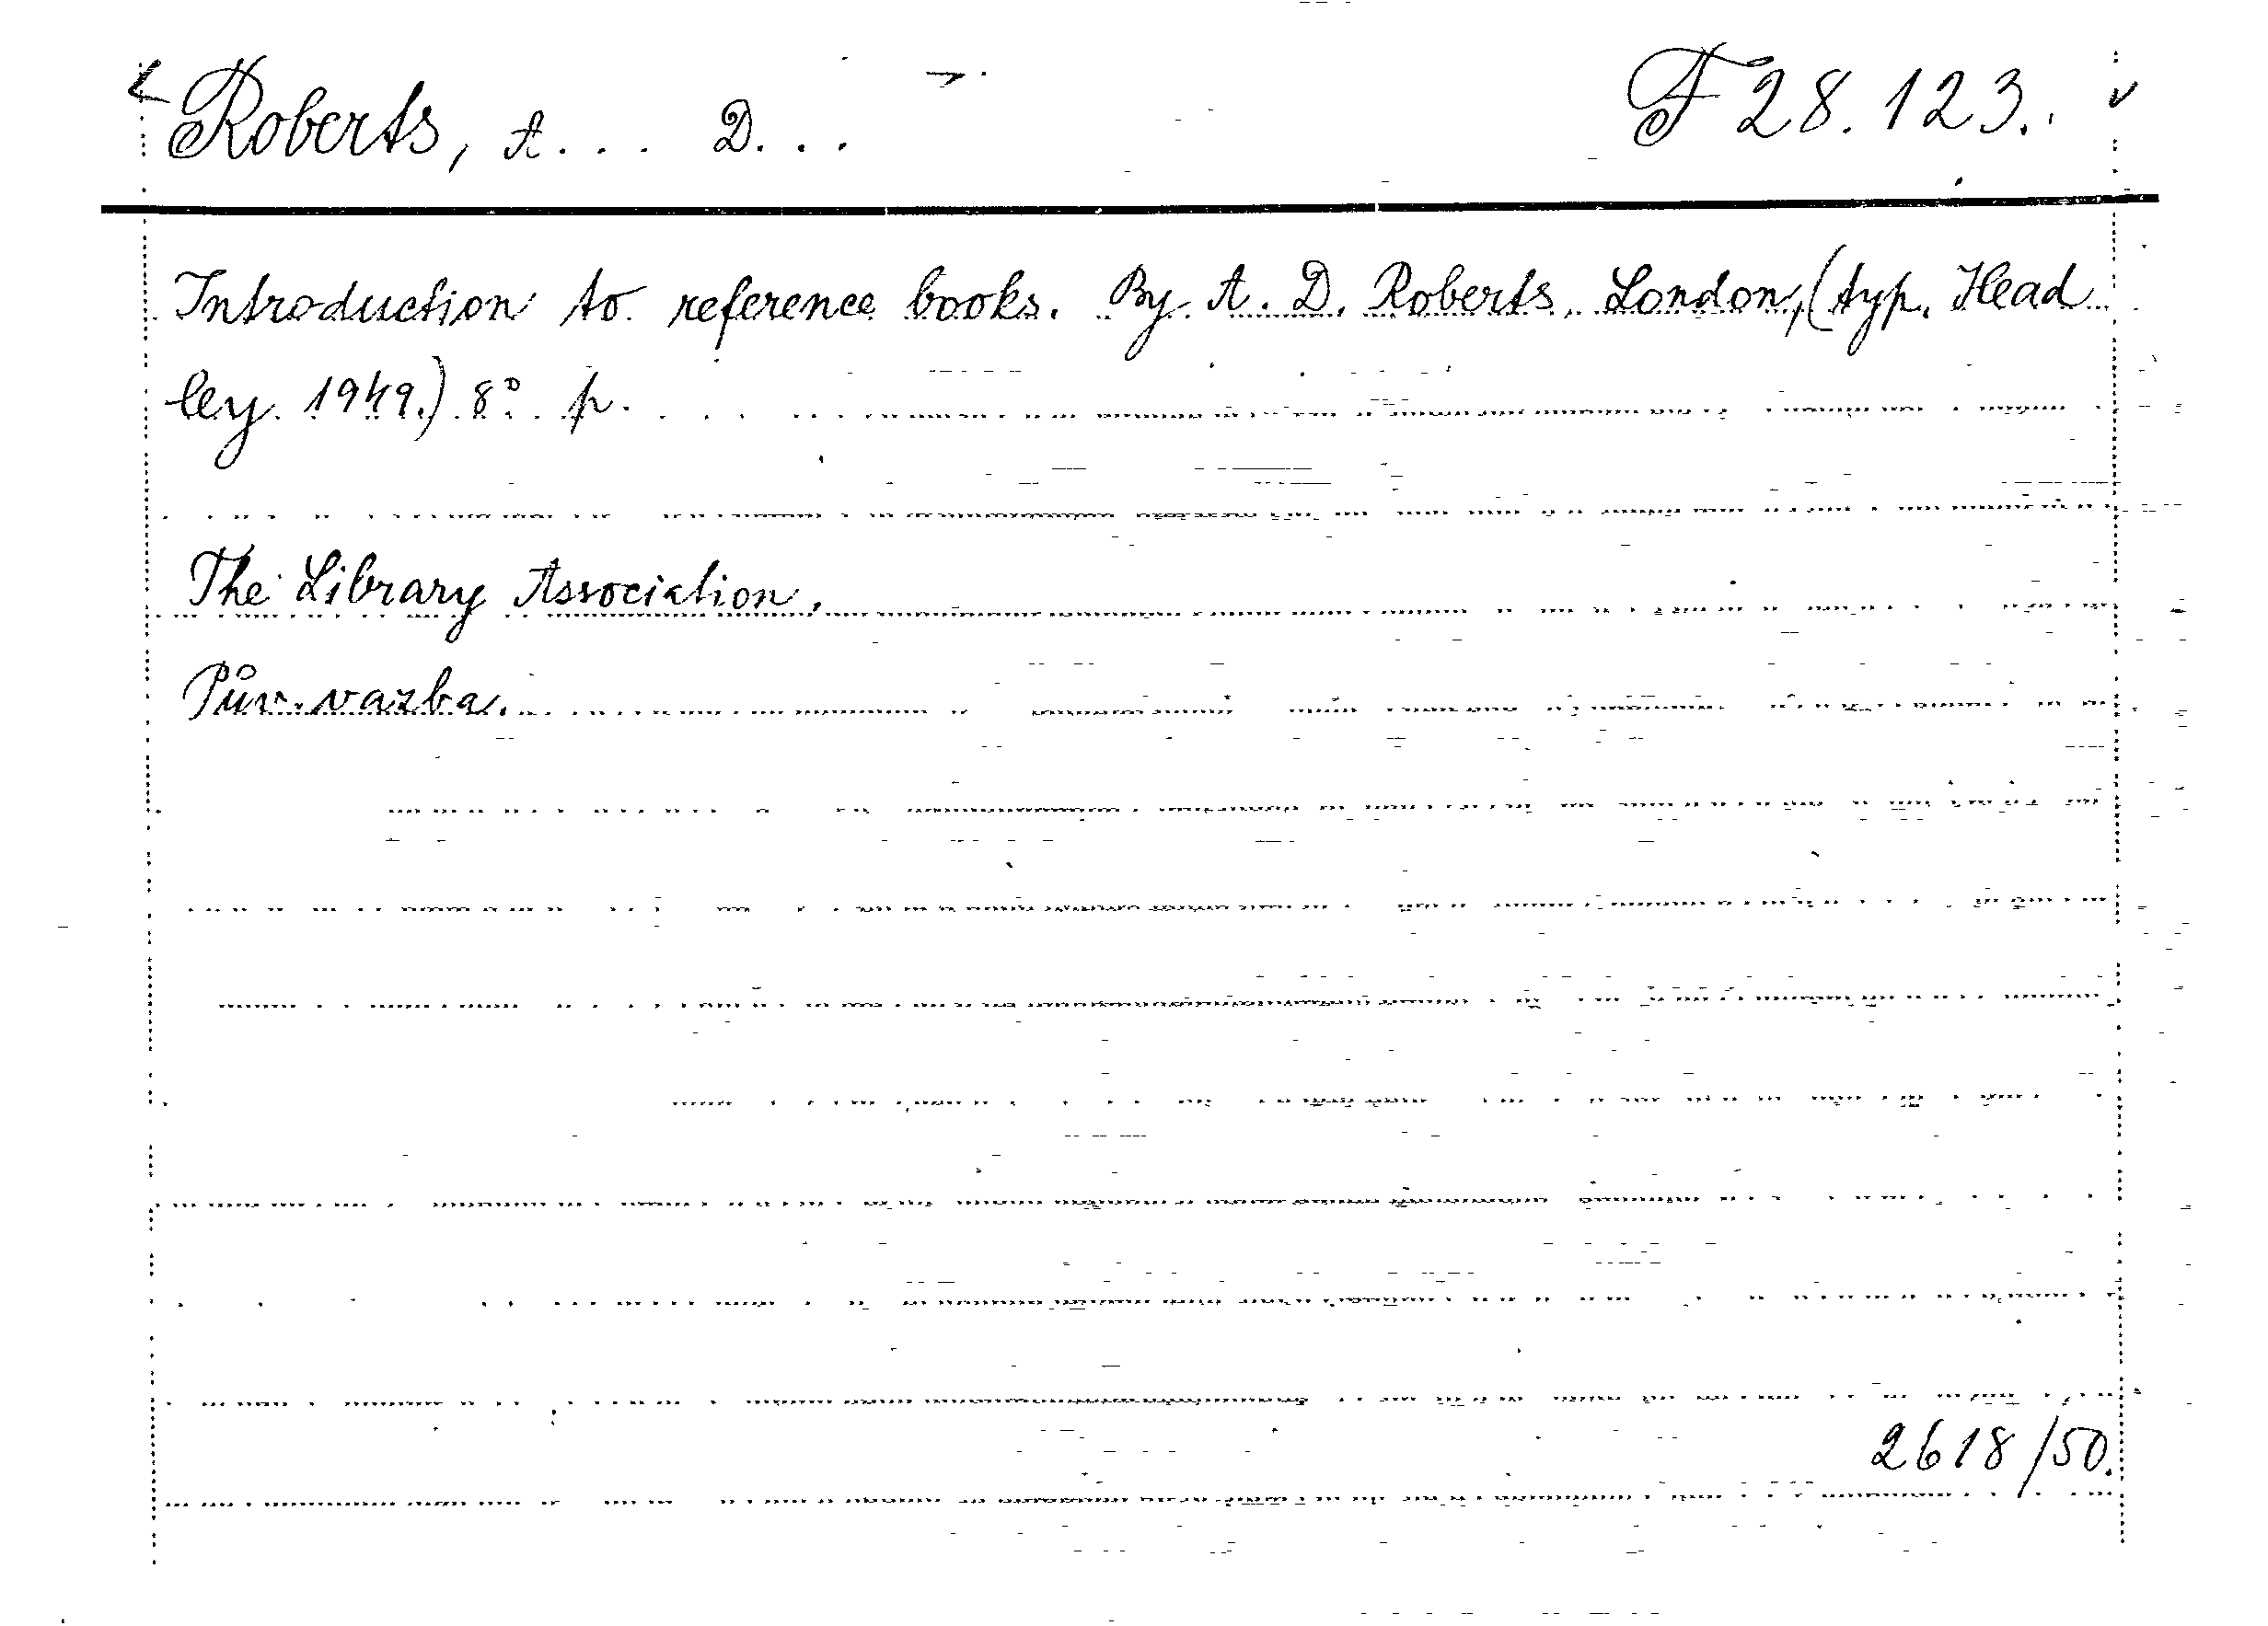 Roberts, A... D... F 28.123.
Introduction to reference books. By A. D. Roberts. London, (typ. Head
ley. 1949.) 8° p.
The Library Association.
Pův. vazba.
2618/50.